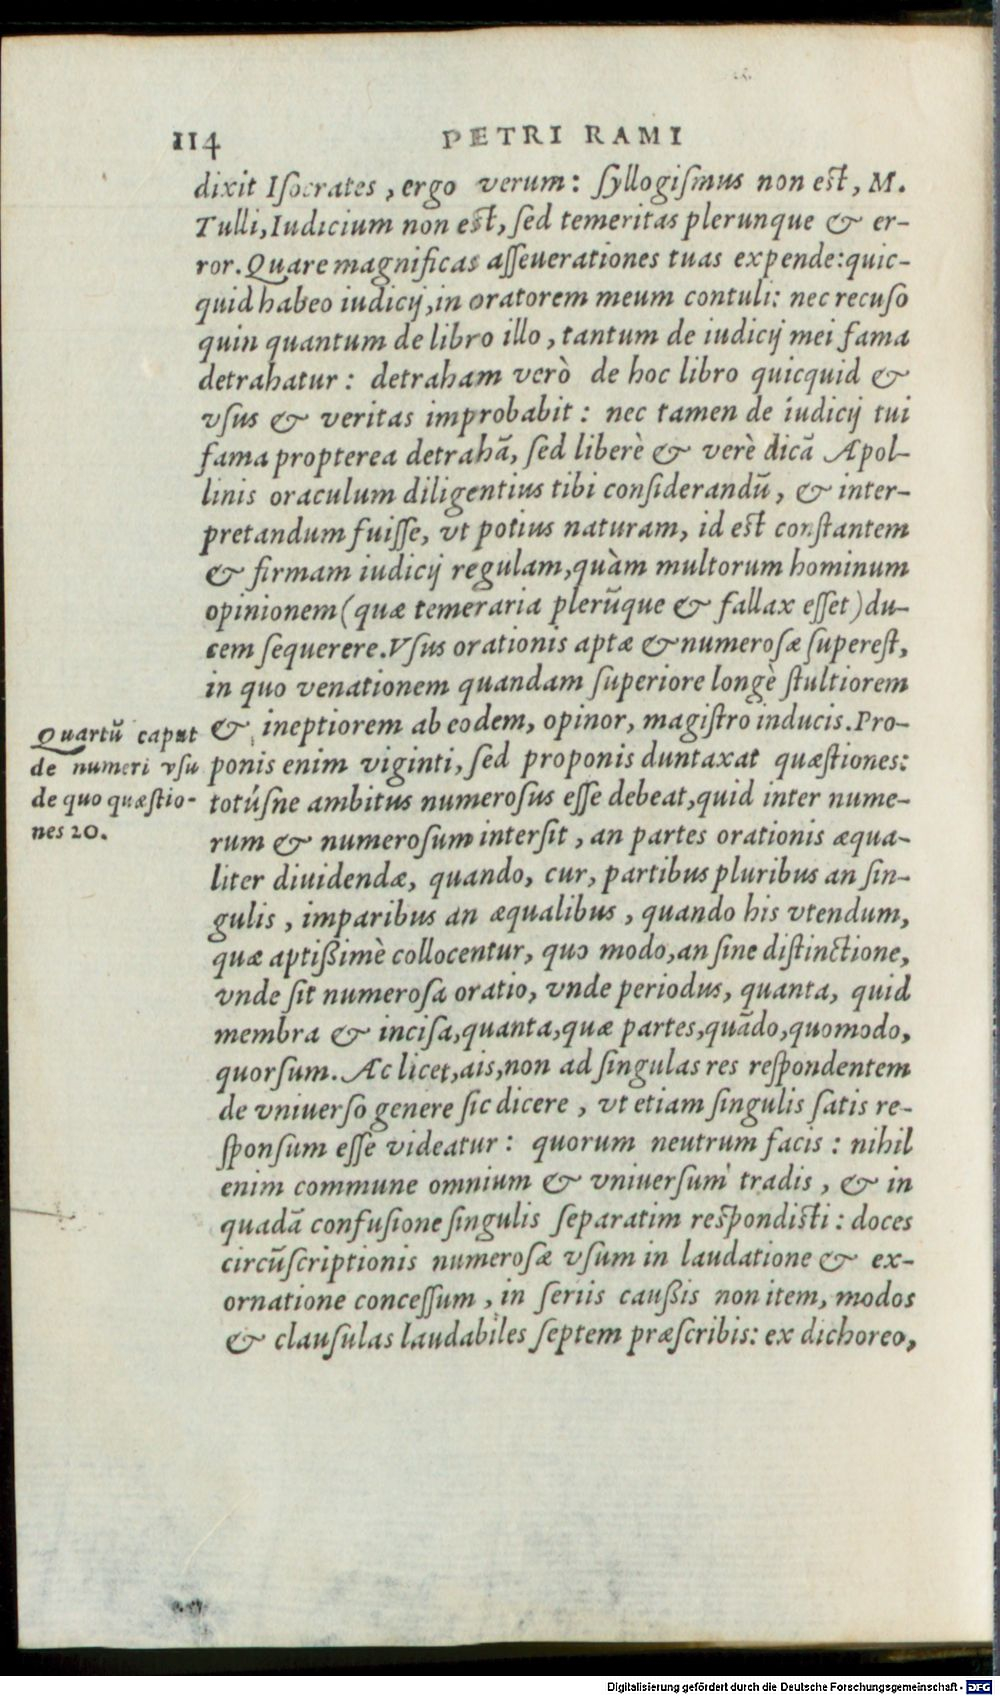 114 PETRI RAMI
dixit Iſocrates, ergo verum: ſyllogiſmus non eſt, M.
Tulli, Iudicium non eſt, ſed temeritas plerunque & er-
ror. Quare magnificas aſſeuerationes tuas expende: quic-
quid habeo iudicij, in oratorem meum contuli: nec recuſo
quin quantum de libro illo, tantum de iudicij mei fama
detrahatur: detraham verò de hoc libro quicquid &
vſus & veritas improbabit: nec tamen de iudicij tui
fama propterea detrahã, ſed liberè & verè dicã Apol-
linis oraculum diligentius tibi conſiderandũ, & inter-
pretandum fuiſſe, vt potius naturam, id eſt conſtantem
& firmam iudicij regulam, quàm multorum hominum
opinionem (quæ temeraria plerũque & fallax eſſet) du-
cem ſequerere. Vſus orationis aptæ & numeroſæ ſupereſt,
in quo venationem quandam ſuperiore longè ſtultiorem
& ineptiorem ab eodem, opinor, magiſtro inducis. Pro-
ponis enim viginti, ſed proponis duntaxat quæſtiones:
totúſne ambitus numeroſus eſſe debeat, quid inter nume-
rum & numeroſum interſit, an partes orationis æqua-
liter diuidendæ, quando, cur, partibus pluribus an ſin-
gulis, imparibus an æqualibus, quando his vtendum,
quæ aptißimè collocentur, quo modo, an ſine diſtinctione,
vnde ſit numeroſa oratio, vnde periodus, quanta, quid
membra & inciſa, quanta, quæ partes, quãdo, quomodo,
quorſum. Ac licet, ais, non ad ſingulas res reſpondentem
de vniuerſo genere ſic dicere, vt etiam ſingulis ſatis re-
ſponſum eſſe videatur: quorum neutrum facis: nihil
enim commune omnium & vniuerſum tradis, & in
quadã confuſione ſingulis ſeparatim reſpondiſti: doces
circũſcriptionis numeroſæ vſum in laudatione & ex-
ornatione conceſſum, in ſeriis caußis non item, modos
& clauſulas laudabiles ſeptem præſcribis: ex dichoreo,
Quartũ caput
de numeri vſu
de quo quæſtio-
nes 20.
Digitalisierung gefördert durch die Deutsche Forschungsgemeinschaft - DFG